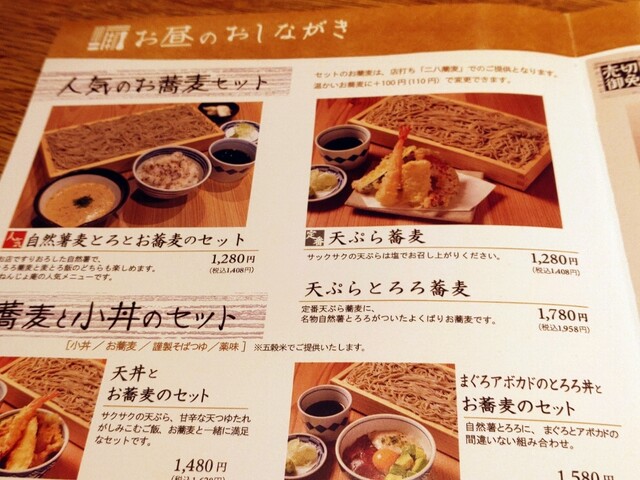 お昼のおしながき
人気のお蕎麦セット
セットのお蕎麦は、店打ち「二八蕎麦」でのご提供となります。
温かいお蕎麦に+100円(110円)で変更できます。
人気
自然薯麦とろとお蕎麦のセット
お店ですりおろした自然薯で、
とろろ蕎麦と麦とろ飯のどちらも楽しめます。
ねんじょ庵の人気メニューです。
1,280円
(税込1,408円)
定番
天ぷら蕎麦
サックサクの天ぷらは塩でお召し上がりください。
1,280円
(税込1,408円)
天ぷらとろろ蕎麦
定番天ぷら蕎麦に、
名物自然薯とろろがついたよくばりお蕎麦です。
1,780円
(税込1,958円)
蕎麦と小丼のセット
[小丼/お蕎麦/謹製そばつゆ/薬味] ※五穀米でご提供いたします。
天丼と
お蕎麦のセット
サクサクの天ぷら、甘辛な天つゆたれ
がしみこむご飯、お蕎麦と一緒に満足
なセットです。
1,480円
まぐろアボカドのとろろ丼と
お蕎麦のセット
自然薯とろろに、まぐろとアボカドの
間違いない組み合わせ。
1,580
大切